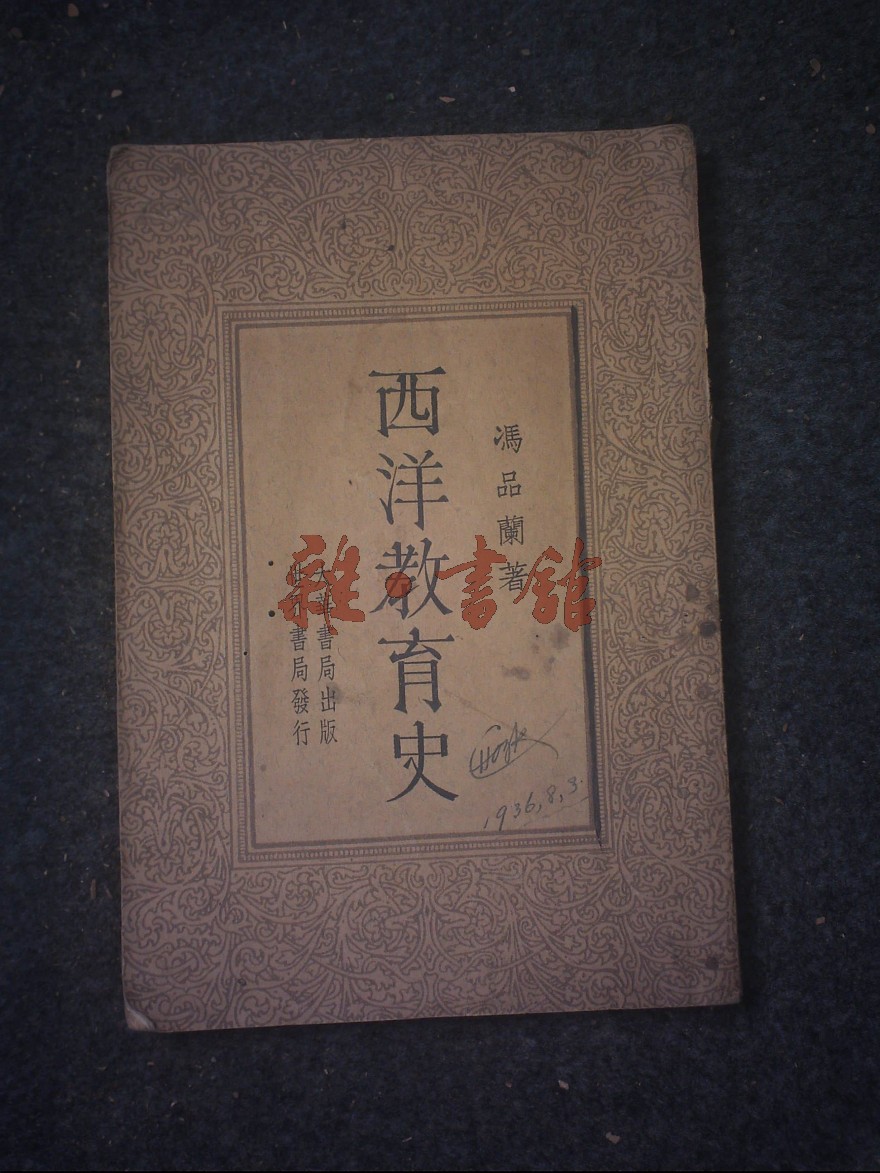 馮品蘭著
西洋教育史
大華書局出版
書局發行
1936,8,3.
雜·書館